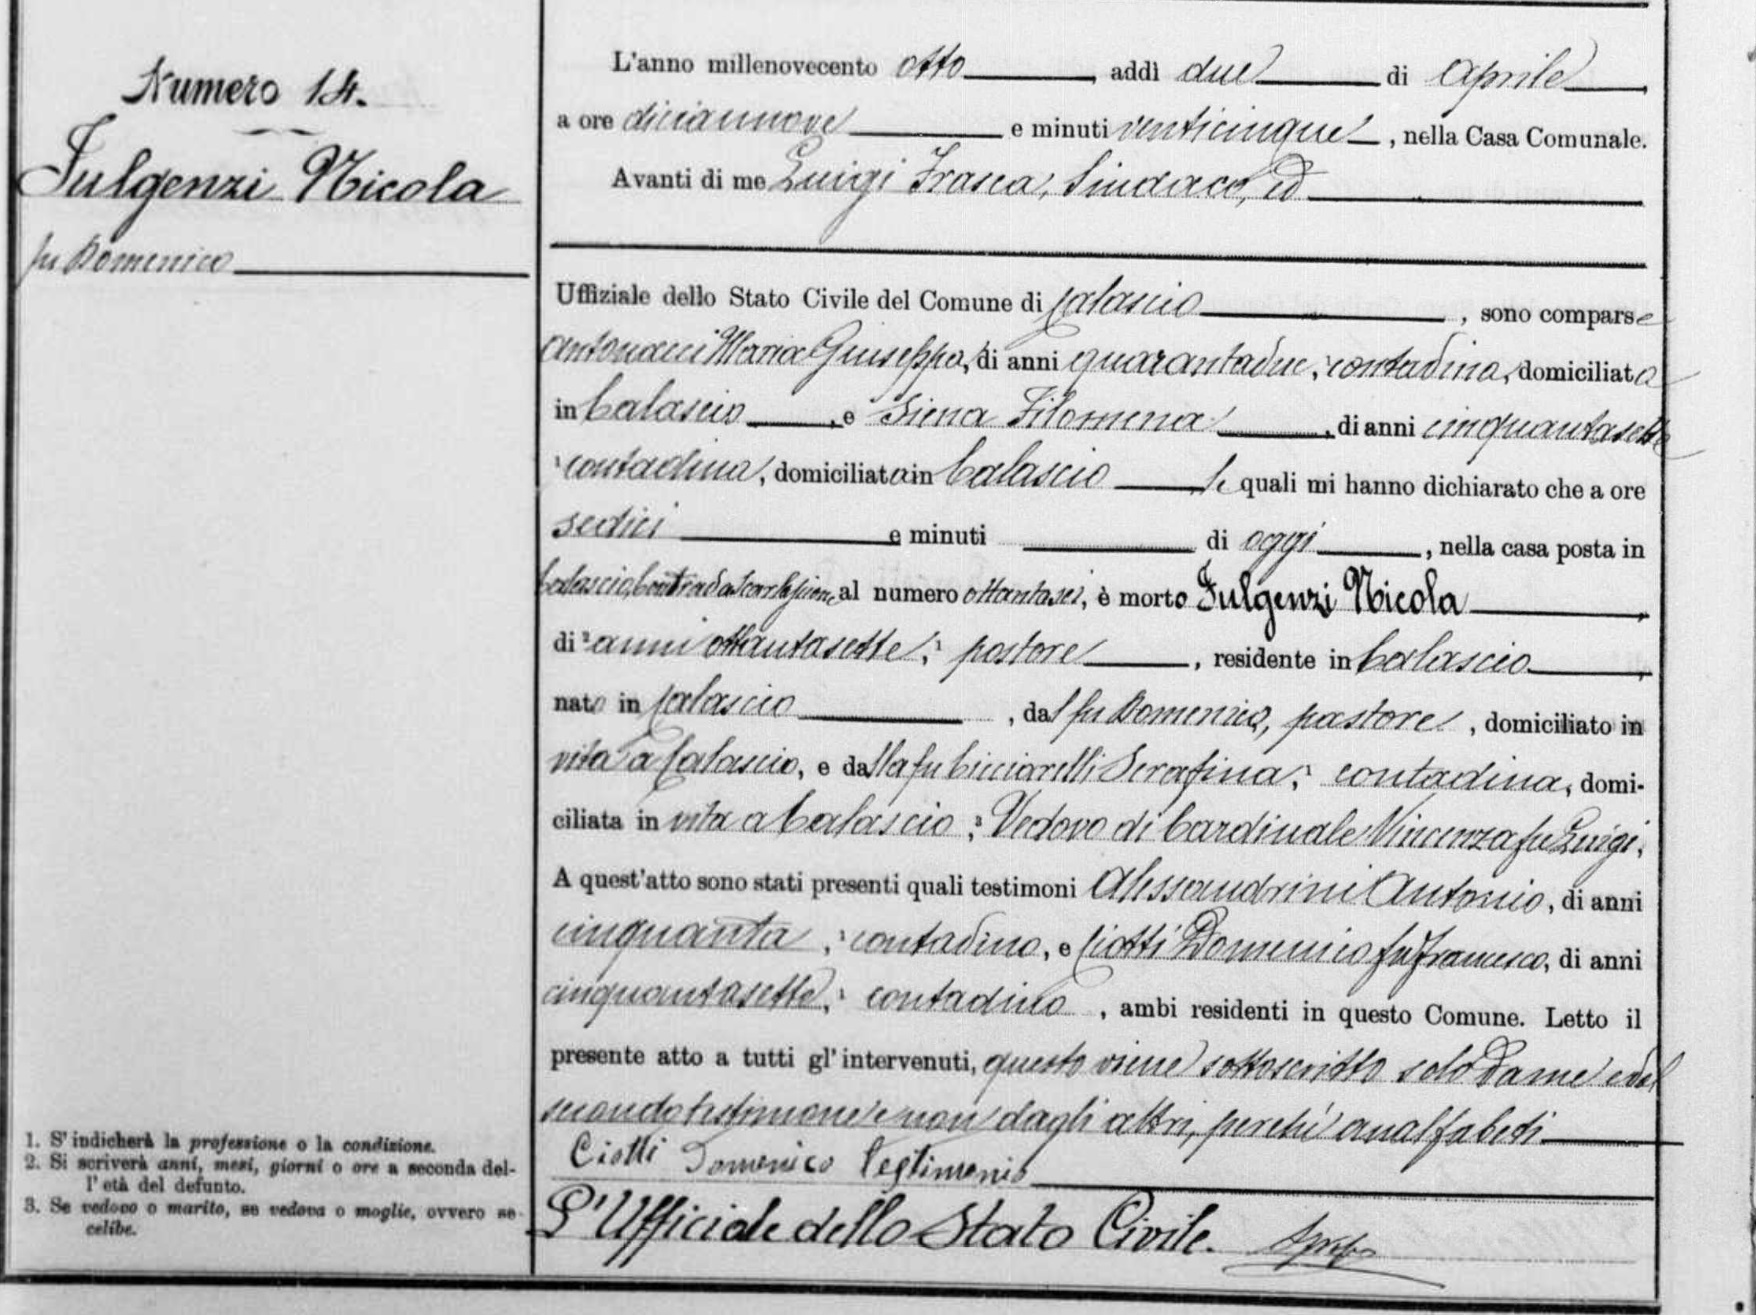 Numero 14.
Fulgenzi Nicola
fu Domenico
1. S'indicherà la professione o la condizione.
2. Si scriverà anni, mesi, giorni o ore a seconda del-
l'età del defunto.
3. Se vedovo o marito, se vedova o moglie, ovvero se
celibe.
L'anno millenovecento otto, addì due di Aprile,
a ore diciannove e minuti venticinque, nella Casa Comunale.
Avanti di me Luigi Frasca, Sindaco, ed
Uffiziale dello Stato Civile del Comune di Calascio, sono comparse
Antonacci Maria Giuseppa, di anni quarantadue, contadina, domiciliata
in Calascio, e Siena Filomena, di anni cinquantasette
contadina, domiciliata in Calascio le quali mi hanno dichiarato che a ore
sedici e minuti di oggi, nella casa posta in
Calascio, Contrada al numero ottantasei, è morto Fulgenzi Nicola,
di ² anni ottantasette, pastore, residente in Calascio,
nato in Calascio, dal fu Domenico, pastore, domiciliato in
vita a Calascio, e dalla fu Cicciarelli Serafina, contadina, domi-
ciliata in vita a Calascio; ³ Vedovo di Cardinale Vincenza fu Luigi.
A quest'atto sono stati presenti quali testimoni Alessandrini Antonio, di anni
cinquanta, ¹ contadino, e Ciotti Domenico fu Francesco, di anni
cinquantasette, ¹ contadino, ambi residenti in questo Comune. Letto il
presente atto a tutti gl'intervenuti, questo viene sottoscritto solo da me e dal
secondo testimone e non dagli altri, perchè analfabeti
Ciotti Domenico Testimonio
L'Ufficiale dello Stato Civile.